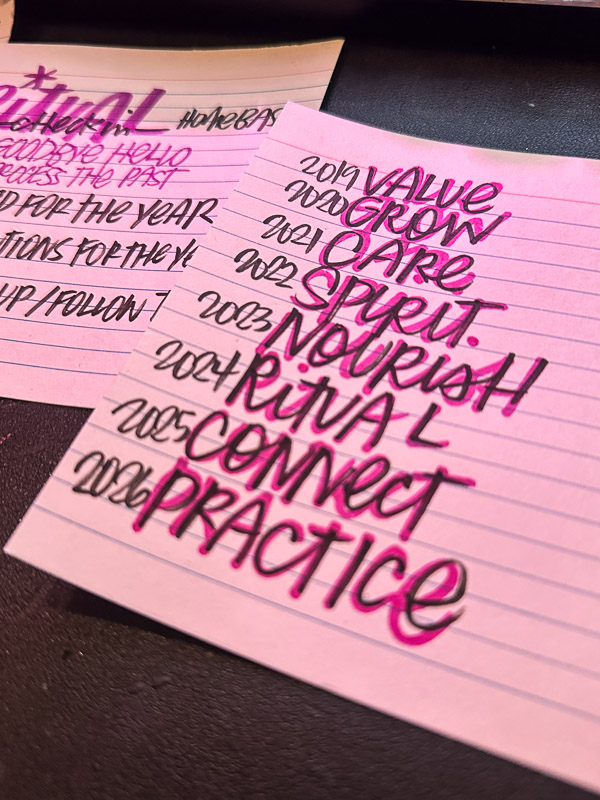 *
Ritual
CHECK-IN HOMEBAS
GOODBYE HELLO
ROCESS THE PAST
D FOR THE YEAR
TIONS FOR THE YE
UP/FOLLOW T
2019 VALUE
2020 GROW
2021 CARE
2022 SPIRIT.
2023 NOURISH
2024 RITUAL
2025 CONNECT
2026 PRACTICE